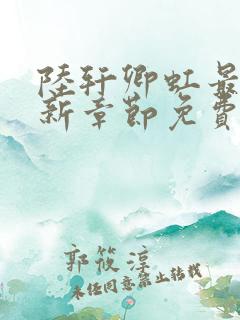 陸轩卿虹最
新章節免費
郭筱淳
未经同意禁止转载